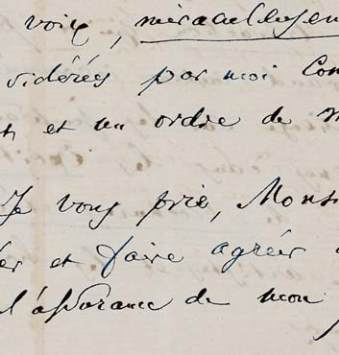 voix, miraculeusem
sidérés par moi Com
et un ordre de m
Je vous prie, Mons
er et faire agréer
l'assurance de mon